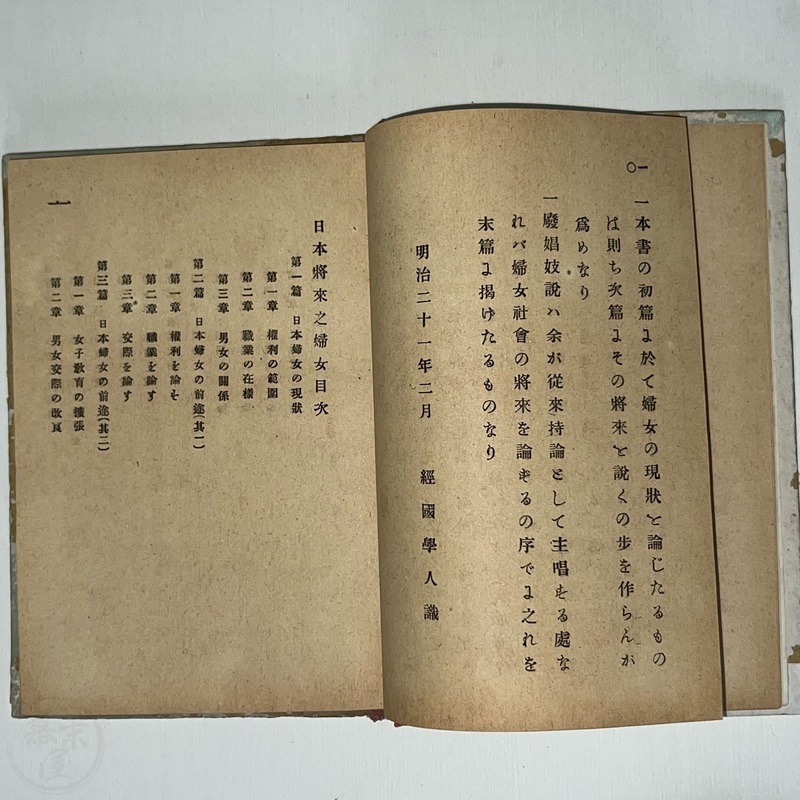 一〇
一本書の初篇ニ於て婦女の現狀を論じたるもの
は則ち次篇ニその將來を說くの步を作らんが
爲めなり
一廢娼妓說ハ余が從來持論として主唱する處な
れバ婦女社會の將來を論ずるの序でニ之れを
末篇ニ揭げたるものなり
明治二十一年二月 經國學人識
日本將來之婦女目次
第一篇 日本婦女の現狀
第一章 權利の範圍
第二章 職業の在樣
第三章 男女の關係
第二篇 日本婦女の前途(其一)
第一章 權利を論ず
第二章 職業を論ず
第三章 交際を論ず
第三篇 日本婦女の前途(其二)
第一章 女子敎育の擴張
第二章 男女交際の改良
一